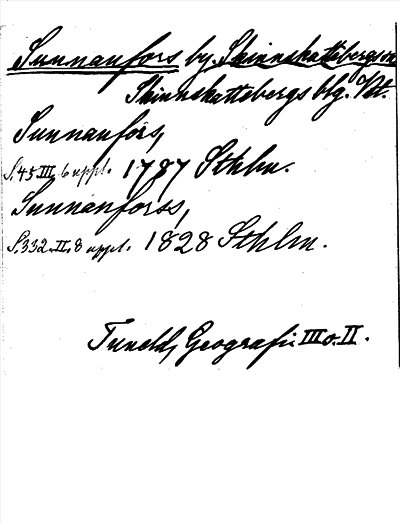 Sunnanfors by. Skinnskattebergs sn
Skinnskattebergs blg. Vstm.
Sunnanfors,
S. 45 III. 6 uppl. 1787 Sthlm.
Sunnanforss,
S. 332. II. 8 uppl. 1828 Sthlm.
Tuneld, Geografi III o. II.